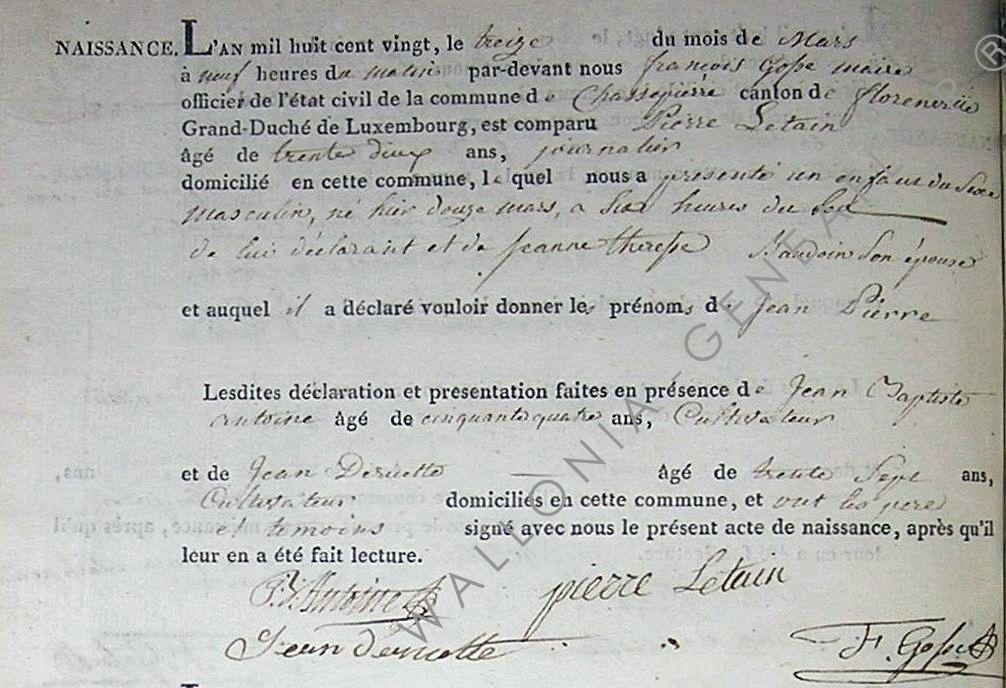 NAISSANCE. L'AN mil huit cent vingt, le treize du mois de Mars
à neuf heures du matin par-devant nous françois Gosse maire
officier de l'état civil de la commune de Chassepierre canton de florenville
Grand-Duché de Luxembourg, est comparu Pierre Letain
âgé de trente deux ans, journalier
domicilié en cette commune, lequel nous a présenté un enfant du Sexe
masculin, né hier douze mars, a Six heures du Soir
de lui déclarant et de jeanne therese Baudoin Son épouse
et auquel il a déclaré vouloir donner les prénoms de Jean Pierre
Lesdites déclaration et presentation faites en présence de Jean Baptiste
antoine âgé de cinquante quatre ans, Cultivateur
et de Jean Deruette âgé de trente Sept ans,
Cultivateur domiciliés en cette commune, et ont les pere
et temoins signé avec nous le présent acte de naissance, après qu'il
leur en a été fait lecture.
Antoine pierre Letain
Jean deruette F. Gosse
WALLONIA GENEA
®
L'AN